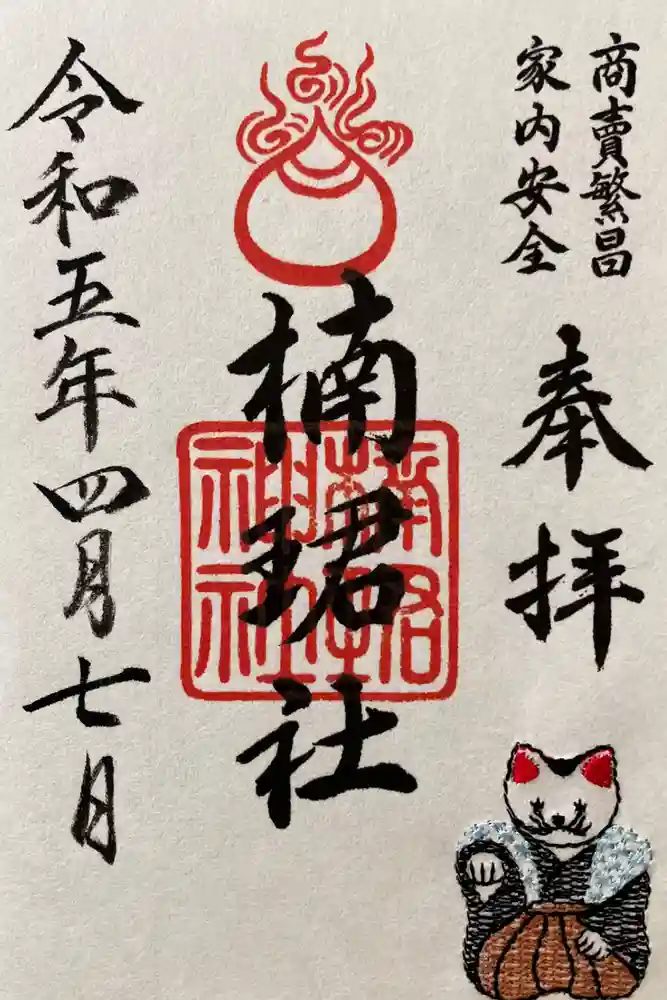 商賣繁昌
家内安全
奉拝
楠珺社
令和五年四月七日